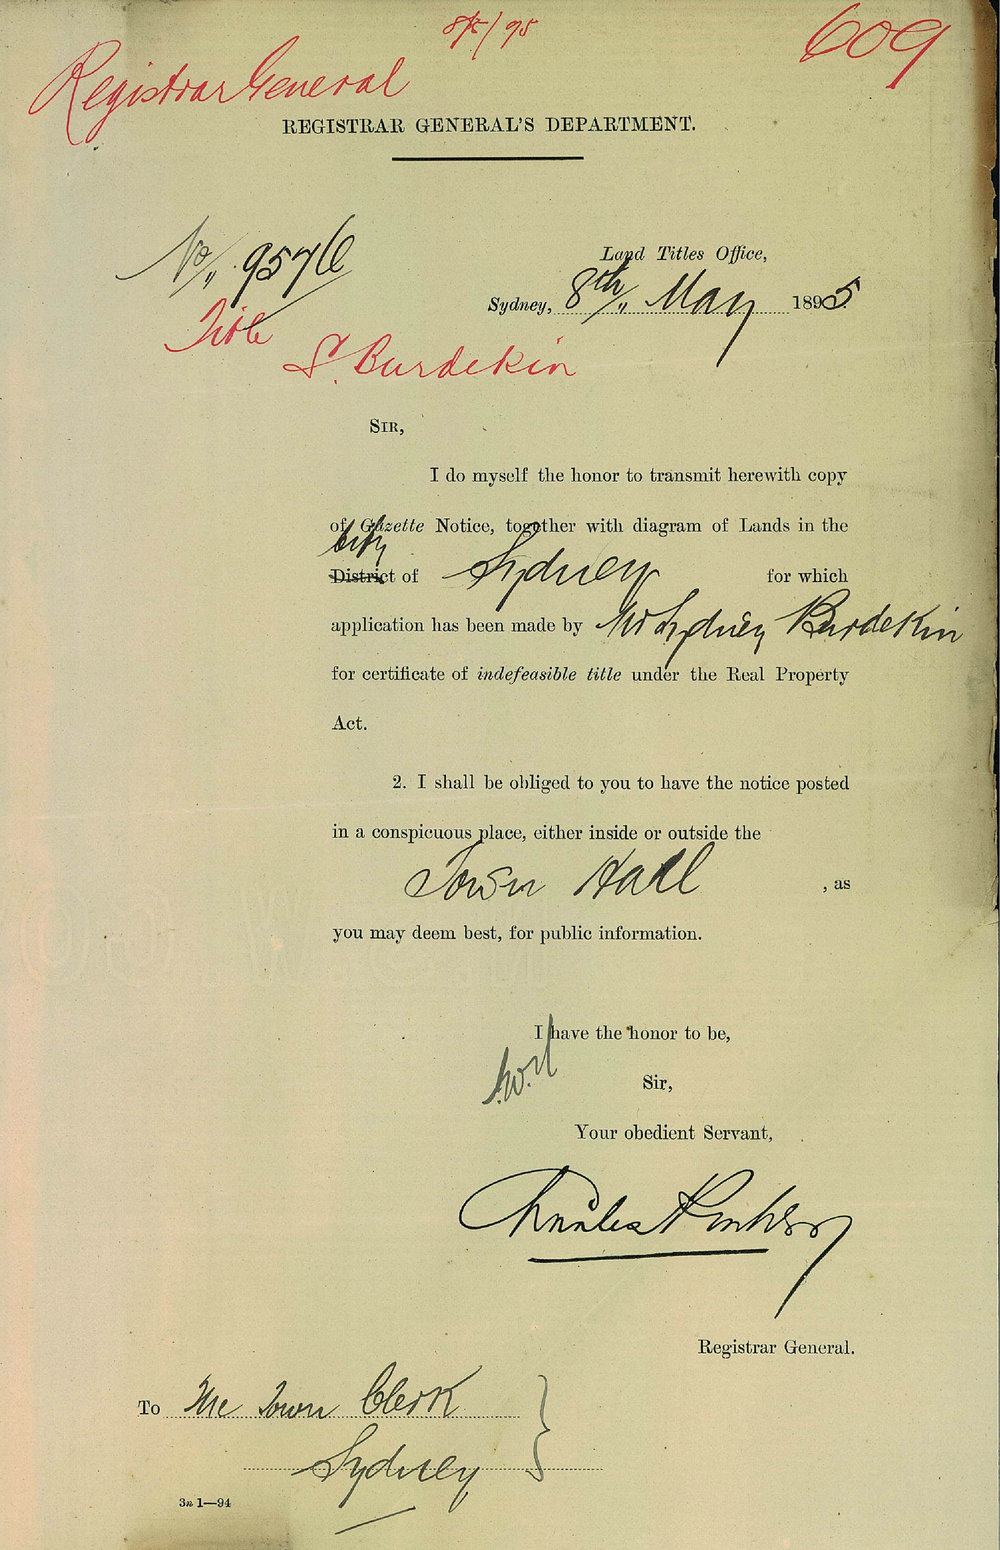 8/5/95
609
Registrar General
REGISTRAR GENERAL'S DEPARTMENT.
No,, 9576
Land Titles Office,
Sydney, 8th,, May 1895
Title
S. Burdekin
SIR,
I do myself the honor to transmit herewith copy
of Gazette Notice, together with diagram of Lands in the
City
District of Sydney for which
application has been made by Mr Sydney Burdekin
for certificate of indefeasible title under the Real Property
Act.
2. I shall be obliged to you to have the notice posted
in a conspicuous place, either inside or outside the
Town Hall , as
you may deem best, for public information.
I have the honor to be,
Sir,
Your obedient Servant,
Charles
Registrar General.
To The Town Clerk
Sydney
3n 1—94